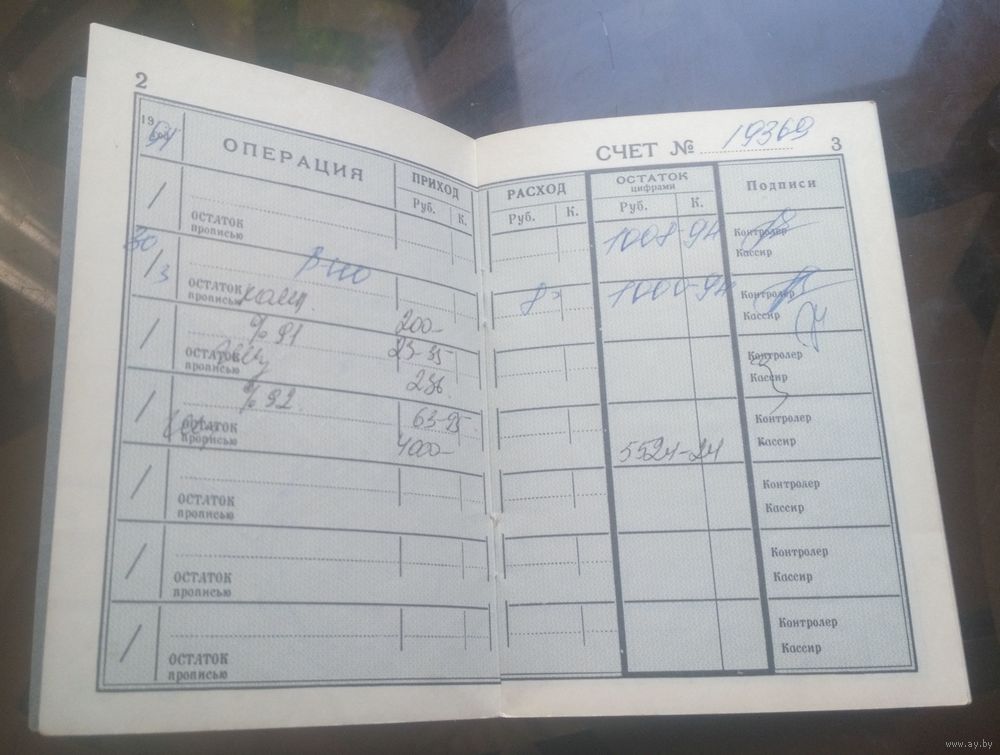 2
19 91
год
ОПЕРАЦИЯ
ПРИХОД
Руб. К.
СЧЕТ № 19369
3
РАСХОД
Руб. К.
ОСТАТОК
цифрами
Руб. К.
Подписи
/
ОСТАТОК
прописью
1008-94
Контролер
Кассир
30/3
ОСТАТОК
прописью
8
1000-94
Контролер
Кассир
комп.
200-
/
% 91
23-35
ОСТАТОК
прописью
Контролер
Кассир
236.
/
% 92.
63-95
ОСТАТОК
прописью
4000-
5524-24
Контролер
Кассир
/
ОСТАТОК
прописью
Контролер
Кассир
/
ОСТАТОК
прописью
Контролер
Кассир
/
ОСТАТОК
прописью
Контролер
Кассир
www.ay.by